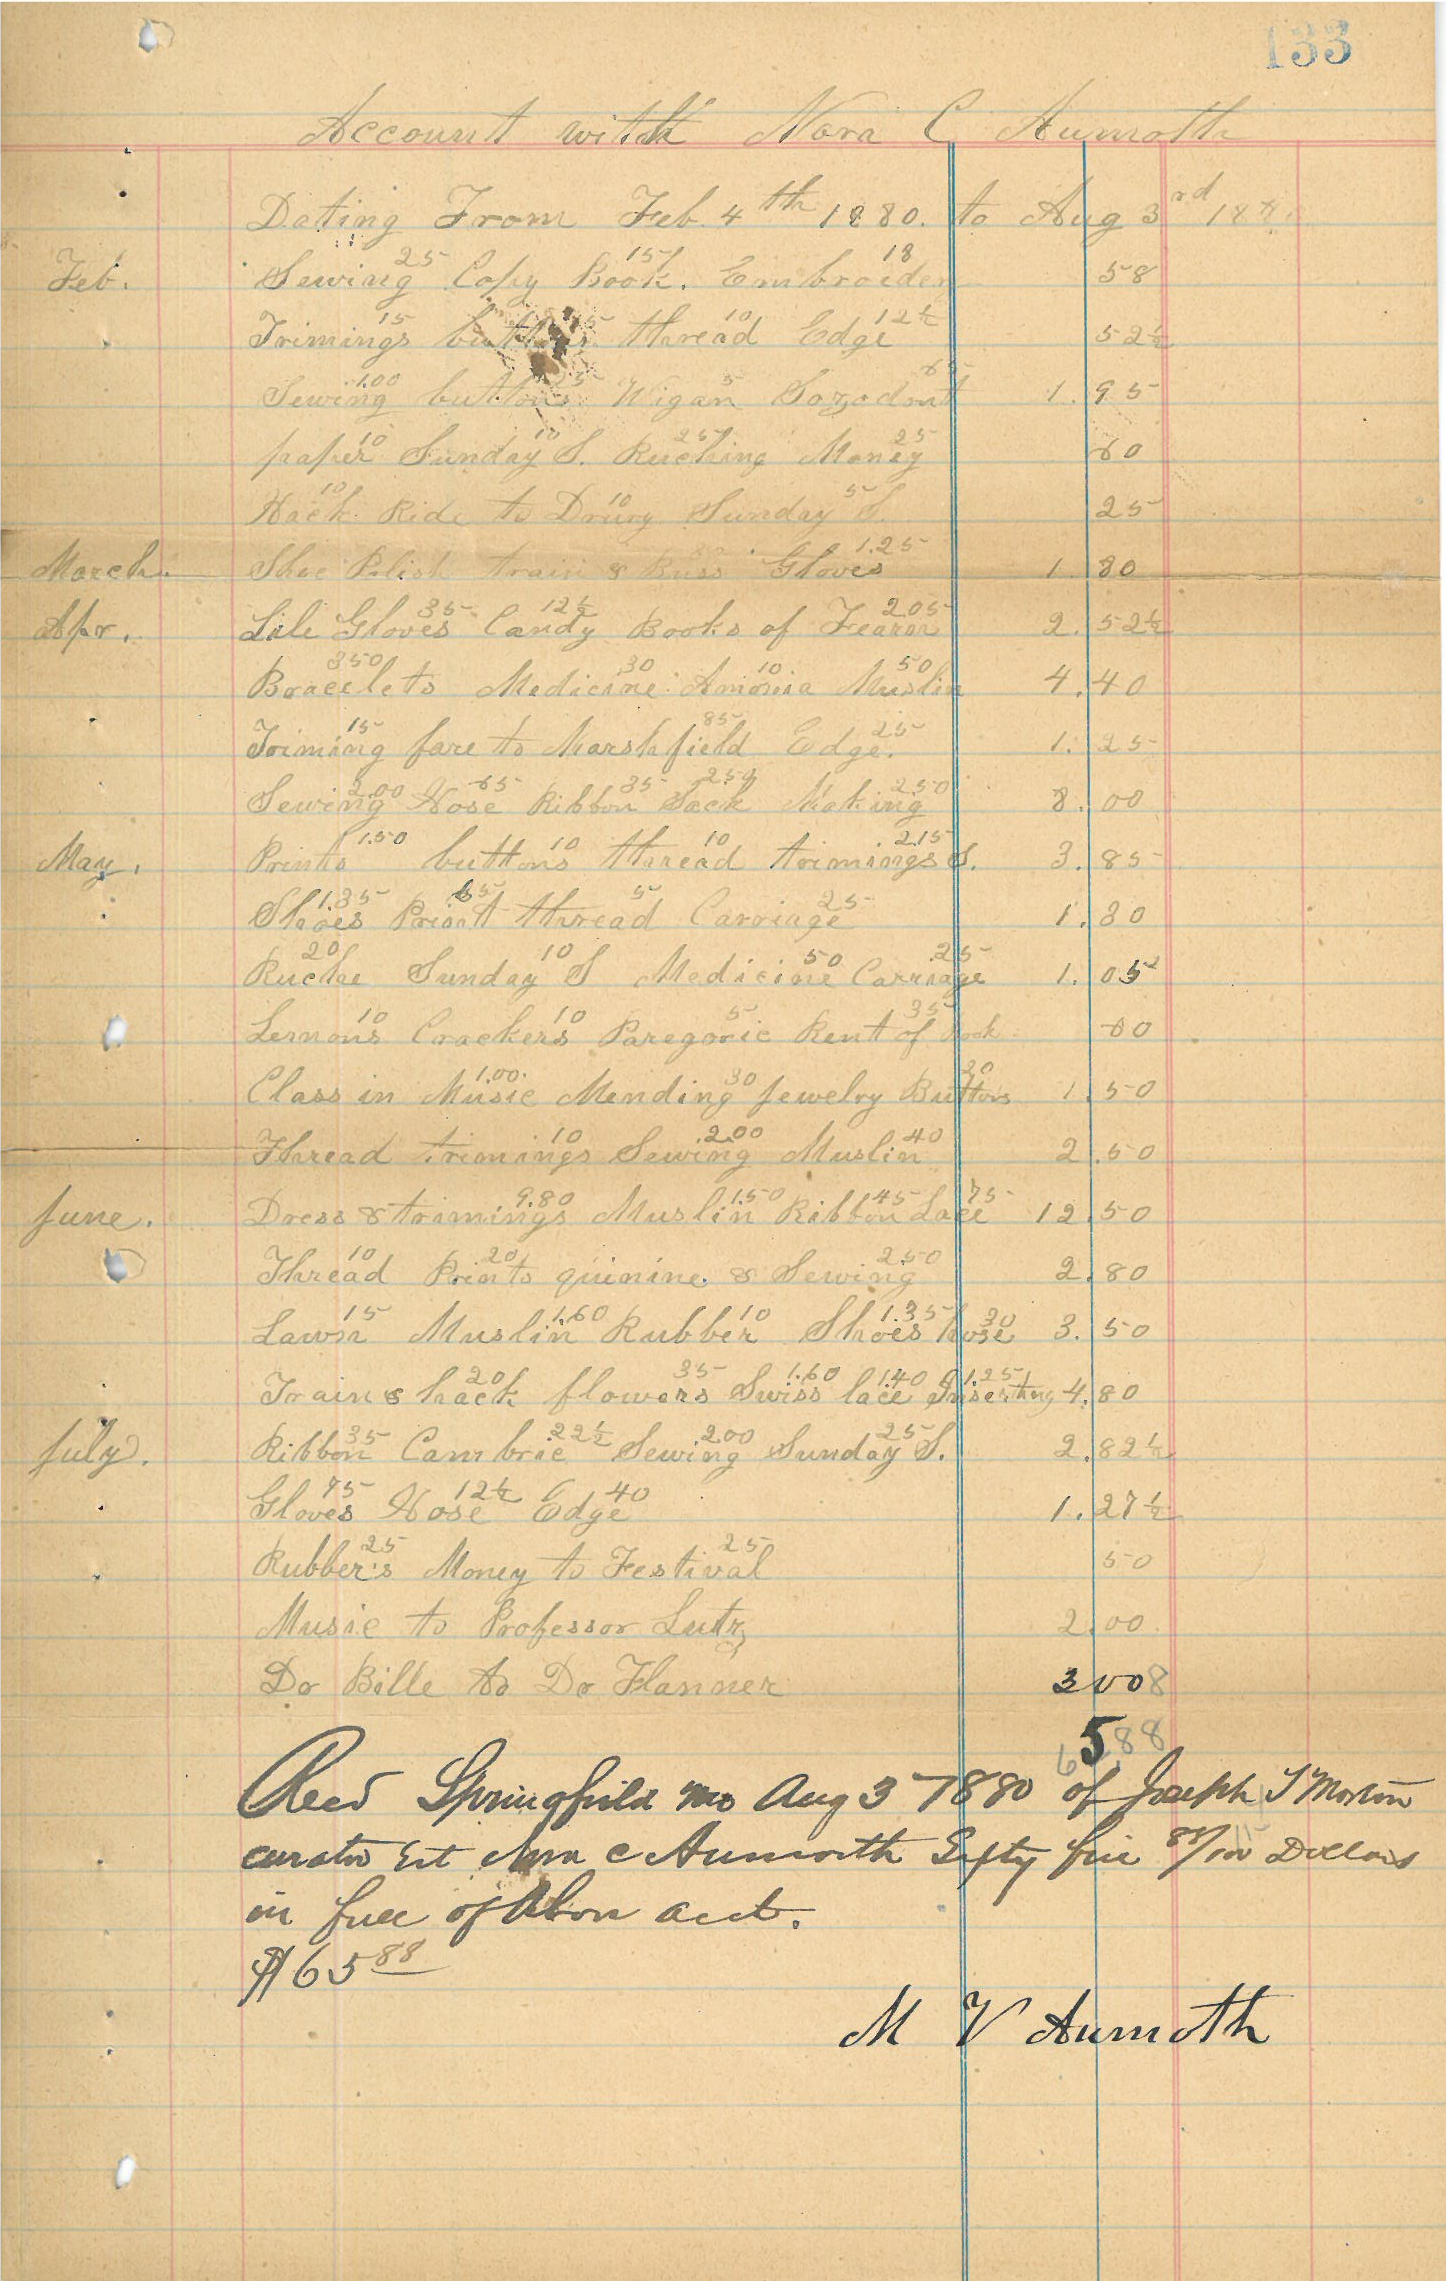 133
Account with Nora C Aumoth
Dating From Feb. 4th 1880. to Aug 3rd 188
Feb. Sewing 25 Copy Book. 15 Embroider 18 58
Trimings 15 buttons 5 thread 10 Edge 12½ 52½
Sewing 1.00 buttons 25 Wigan 5 Sozodont 65 1.95
paper 10 Sunday S. 10 Ruching 25 Money 25 60
Hack 10 Ride to Drury 10 Sunday S. 5 25
March. Shoe Polish train & Buss Gloves 1.25 1.80
Apr. Lile Gloves 35 Candy 12½ Books of Fearn 205 2.52½
Bracelets 350 Medicine 30 Amonia 10 Muslin 50 4.40
Triming 15 fare to Marshfield 85 Edge. 25 1.25
Sewing 2.00 Hose 65 Ribbon 35 Sack 250 Making 250 8.00
May. Prints 1.50 buttons 10 thread 10 trimings 2.15 S. 3.85
Shoes 1.35 Print 65 thread 5 Carriage 25 1.80
Ruche 20 Sunday S 10 Medicine 50 Carriage 25 1.05
Lemons 10 Crackers 10 Paregoric 5 Rent of 35 60
Class in Music 1.00. Mending Jewelry 30 Buttons 20 1.50
Thread trimings 10 Sewing 2.00 Muslin 40 2.50
June. Dress & trimings 9.80 Muslin 1.50 Ribbon 45 Lace 75 12.50
Thread 10 Prints 20 quinine & Sewing 250 2.80
Lawn 15 Muslin 1.60 Rubber 10 Shoes 1.35 hose 30 3.50
Train & hack 20 flowers 35 Swiss 1.60 lace 1.40 Inserting 1.25 4.80
July. Ribbon 35 Cambric 22½ Sewing 200 Sunday S. 25 2.82½
Gloves 75 Hose 12½ Edge 40 1.27½
Rubber's 25 Money to Festival 25 50
Music to Professor Lutz 2.00
Dr Bille to Dr Flanner 3 00
65.88
Recd Springfield Mo Aug 3 1880 of Joseph T Morton
curator Est Nora C Aumoth Sixty five 88/100 Dollars
in full of Abov acct.
$65 88
M V Aumoth